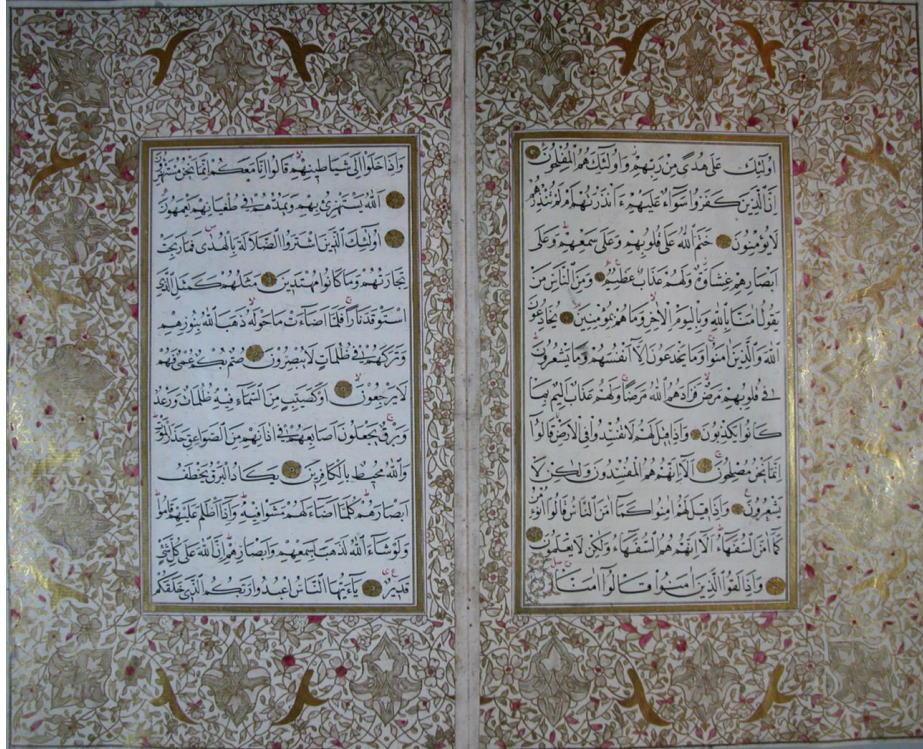 اُولٰٓئِكَ عَلٰى هُدًى مِنْ رَبِّهِمْ وَاُولٰٓئِكَ هُمُ الْمُفْلِحُونَ
اِنَّ الَّذِينَ كَفَرُوا سَوَٓاءٌ عَلَيْهِمْ ءَاَنْذَرْتَهُمْ اَمْ لَمْ تُنْذِرْهُمْ
لَا يُؤْمِنُونَ خَتَمَ اللّٰهُ عَلٰى قُلُوبِهِمْ وَعَلٰى سَمْعِهِمْ وَعَلٰٓى
اَبْصَارِهِمْ غِشَاوَةٌ وَلَهُمْ عَذَابٌ عَظِيمٌ وَمِنَ النَّاسِ مَنْ
يَقُولُ اٰمَنَّا بِاللّٰهِ وَبِالْيَوْمِ الْاٰخِرِ وَمَا هُمْ بِمُؤْمِنِينَ يُخَادِعُونَ
اللّٰهَ وَالَّذِينَ اٰمَنُوا وَمَا يَخْدَعُونَ اِلَّٓا اَنْفُسَهُمْ وَمَا يَشْعُرُونَ
فِى قُلُوبِهِمْ مَرَضٌ فَزَادَهُمُ اللّٰهُ مَرَضًا وَلَهُمْ عَذَابٌ اَلِيمٌ بِمَا
كَانُوا يَكْذِبُونَ وَاِذَا قِيلَ لَهُمْ لَا تُفْسِدُوا فِى الْاَرْضِ قَالُٓوا
اِنَّمَا نَحْنُ مُصْلِحُونَ اَلَٓا اِنَّهُمْ هُمُ الْمُفْسِدُونَ وَلٰكِنْ لَا
يَشْعُرُونَ وَاِذَا قِيلَ لَهُمْ اٰمِنُوا كَمَٓا اٰمَنَ النَّاسُ قَالُٓوا اَنُؤْمِنُ
كَمَٓا اٰمَنَ السُّفَهَٓاءُ اَلَٓا اِنَّهُمْ هُمُ السُّفَهَٓاءُ وَلٰكِنْ لَا يَعْلَمُونَ
وَاِذَا لَقُوا الَّذِينَ اٰمَنُوا قَالُٓوا اٰمَنَّا
وَاِذَا خَلَوْا اِلٰى شَيَاطِينِهِمْ قَالُٓوا اِنَّا مَعَكُمْ اِنَّمَا نَحْنُ مُسْتَهْزِؤُنَ
اَللّٰهُ يَسْتَهْزِئُ بِهِمْ وَيَمُدُّهُمْ فِى طُغْيَانِهِمْ يَعْمَهُونَ
اُولٰٓئِكَ الَّذِينَ اشْتَرَوُا الضَّلَالَةَ بِالْهُدٰى فَمَا رَبِحَتْ
تِجَارَتُهُمْ وَمَا كَانُوا مُهْتَدِينَ مَثَلُهُمْ كَمَثَلِ الَّذِى
اسْتَوْقَدَ نَارًا فَلَمَّٓا اَضَٓاءَتْ مَا حَوْلَهُ ذَهَبَ اللّٰهُ بِنُورِهِمْ
وَتَرَكَهُمْ فِى ظُلُمَاتٍ لَا يُبْصِرُونَ صُمٌّ بُكْمٌ عُمْىٌ فَهُمْ
لَا يَرْجِعُونَ اَوْ كَصَيِّبٍ مِنَ السَّمَٓاءِ فِيهِ ظُلُمَاتٌ وَرَعْدٌ
وَبَرْقٌ يَجْعَلُونَ اَصَابِعَهُمْ فِٓى اٰذَانِهِمْ مِنَ الصَّوَاعِقِ حَذَرَ الْمَوْتِ
وَاللّٰهُ مُحِيطٌ بِالْكَافِرِينَ يَكَادُ الْبَرْقُ يَخْطَفُ
اَبْصَارَهُمْ كُلَّمَٓا اَضَٓاءَ لَهُمْ مَشَوْا فِيهِ وَاِذَٓا اَظْلَمَ عَلَيْهِمْ قَامُوا
وَلَوْ شَٓاءَ اللّٰهُ لَذَهَبَ بِسَمْعِهِمْ وَاَبْصَارِهِمْ اِنَّ اللّٰهَ عَلٰى كُلِّ شَىْءٍ
قَدِيرٌ يَٓا اَيُّهَا النَّاسُ اعْبُدُوا رَبَّكُمُ الَّذِى خَلَقَكُمْ